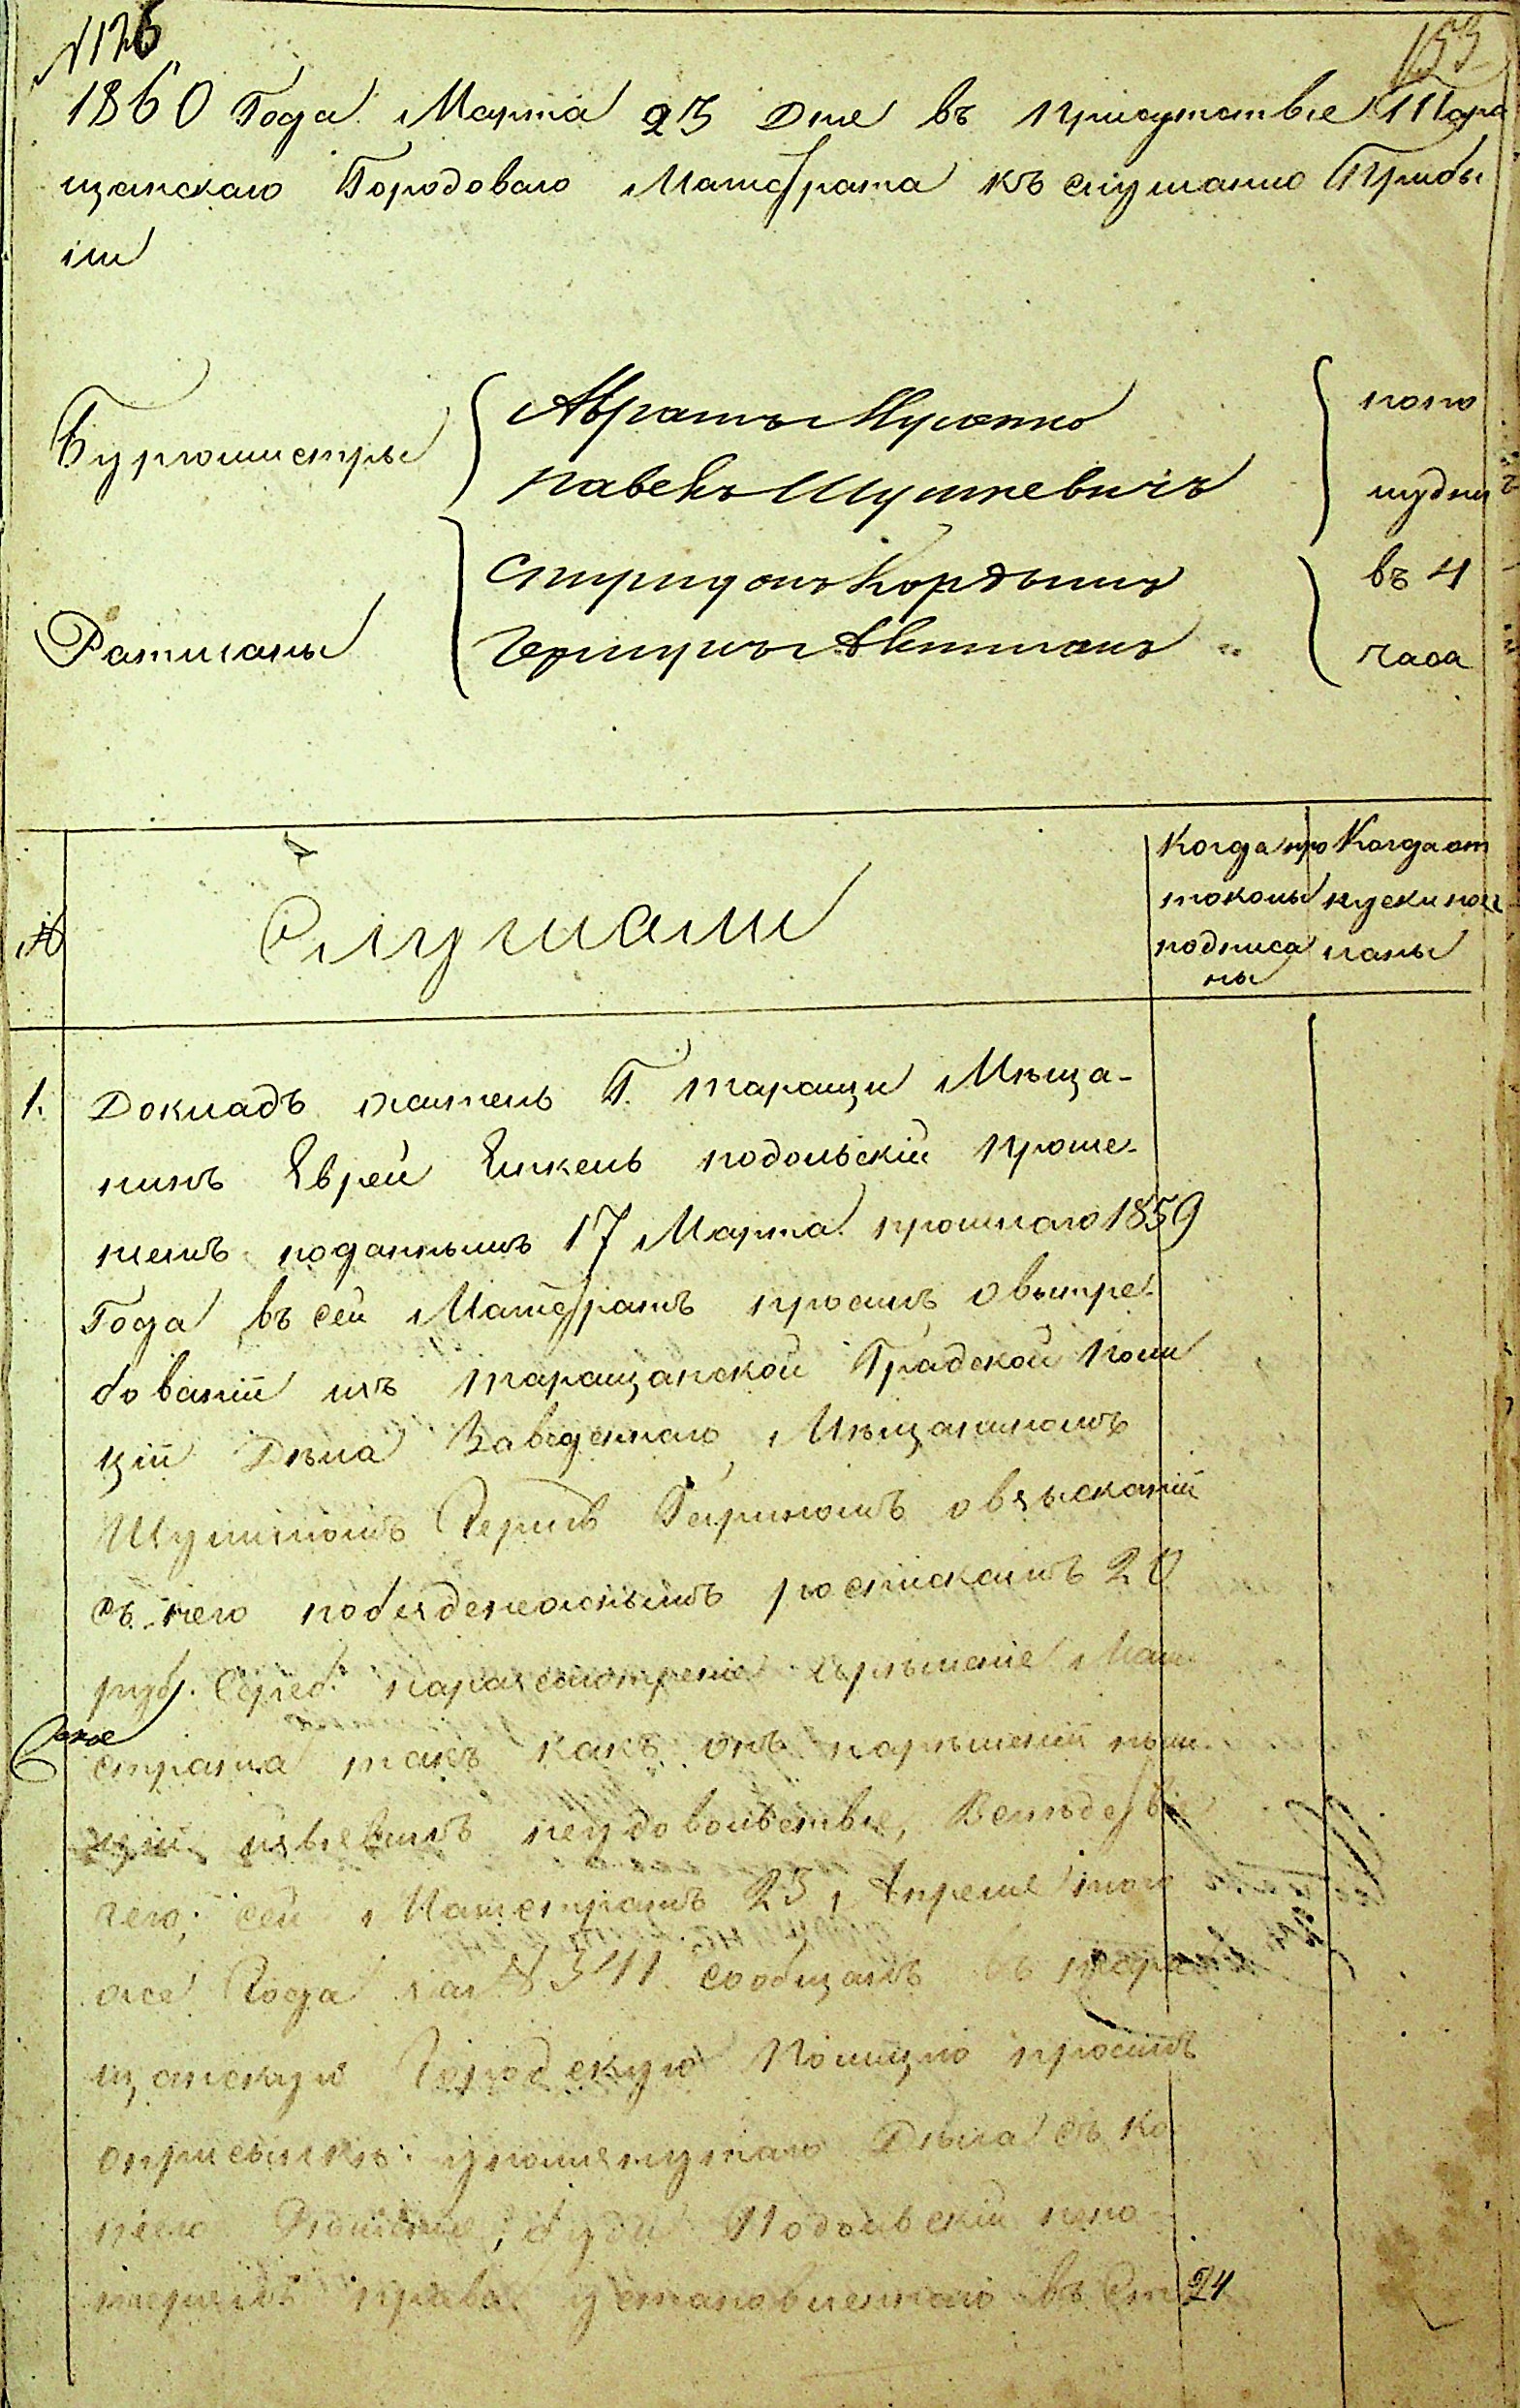 № 126
153
1860 Года Марта 23 Дня въ присутствіе Тара
щанскаго Городоваго Магистрата къ слушанію Прибы
ли
Бургомистры
Аврамъ
Павелъ Шушкевичъ
Ратманы
Спиридонъ Кордышъ
Гершунъ
попо
лудни
въ 4
часа
№
Слушали
Когда про
токолы
подписа
ны
Когда от
пуски пос
ланы
1.
Докладъ житель Г. Таращи Мѣща-
нинъ Еврей Янкель Подольскій проше-
ніемъ поданнымъ 17 Марта прошлаго 1859
Года въ сей Магистратъ просилъ о вытре-
бованіи изъ Таращанской Градской Поли
ціи Дѣла Заведеннаго Мѣщаниномъ
о взысканіи
съ него по безденежнымъ роспискамъ 20
руб. Сереб. на разсмотреніе и рѣшеніе Маги
страта такъ какъ онъ на рѣшеніи поли
ціи изъявилъ неудовольствіе, Вслѣдствіе
чего, сей Магистратъ 23 Апреля того
же Года за № 811 сообщалъ въ Тара
щанскую Городскую Полицію просилъ
о присылкѣ упомянутаго Дѣла съ ко
буде Подольскій непо
терялъ права установленнаго въ Ст 24